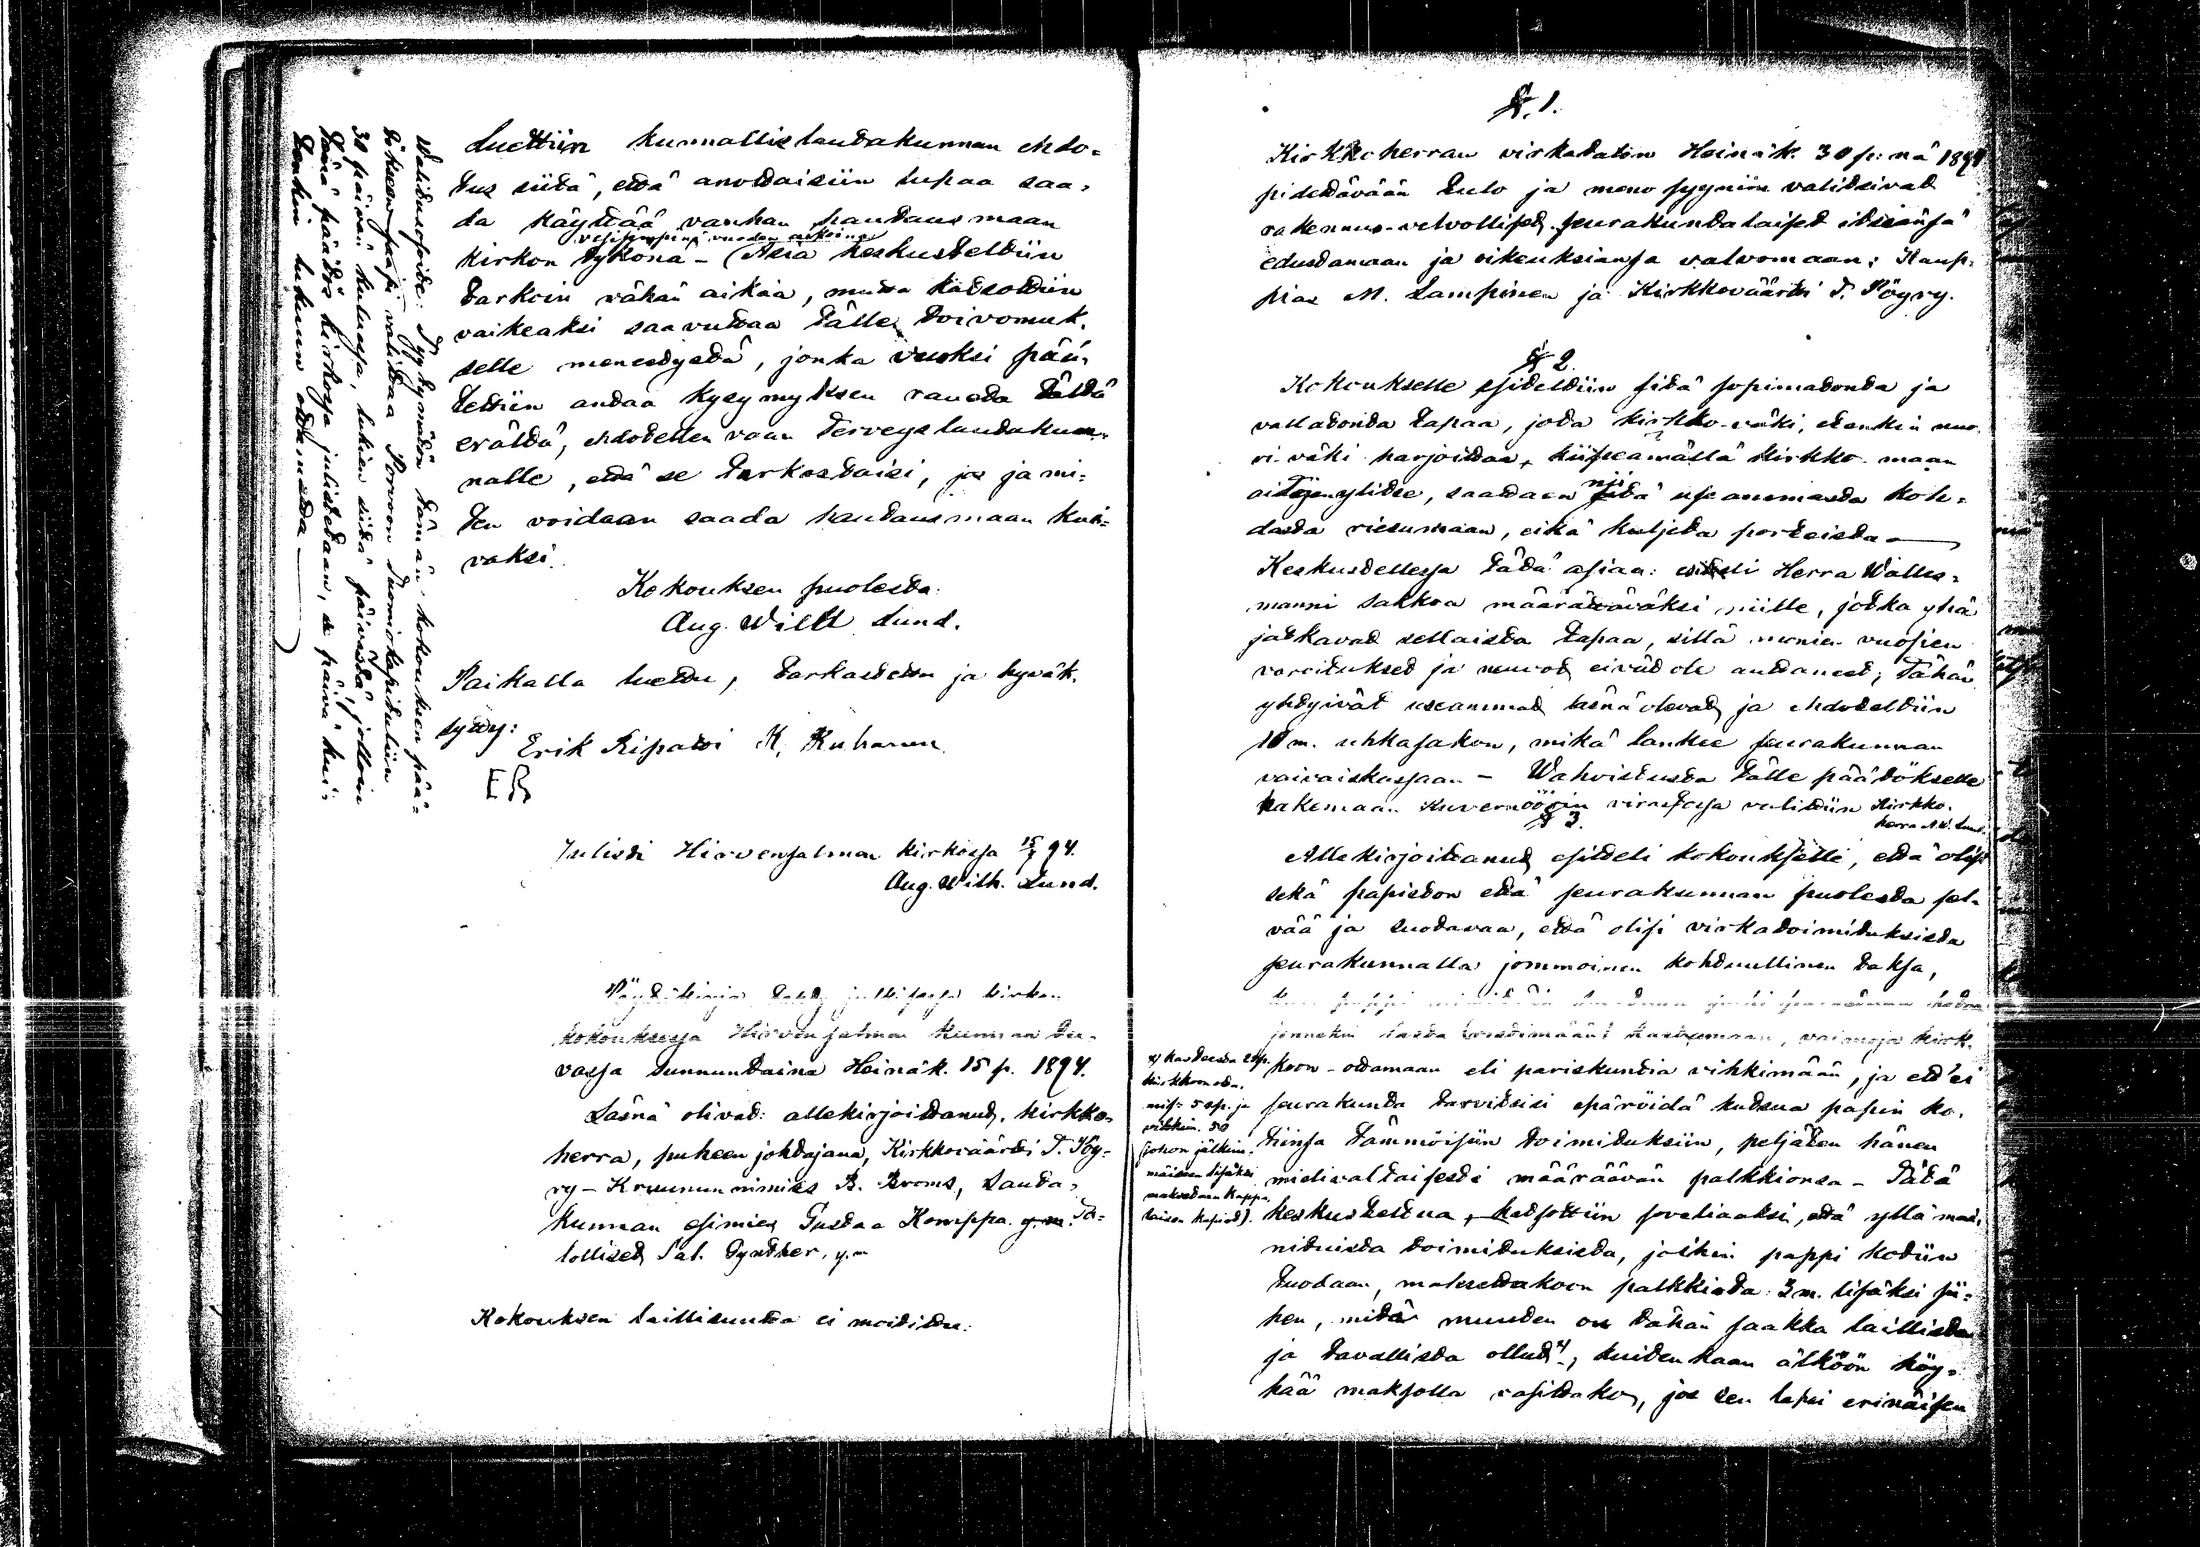 Luettiin kunnallislautakunnan ehdo-
tus siitä, että anottaisiin lupaa saa-
da käyttää vanhan hautausmaan
kirkon tykönä – Asia keskusteltiin
tarkoin vähän aikaa, mutta katsottiin
vaikeaksi saavuttaa tälle toivomuk-
selle menestystä, jonka vuoksi pää-
tettiin antaa kysymyksen raueta tältä
erältä, ehdotellen vaan terveyslautakun-
nalle, että se tarkastaisi, jos ja mi-
ten voidaan saada hautausmaan kui-
vaksi.
Kokouksen puolesta:
Aug. Wilh Lund.
Paikalla luettu, tarkastettu ja hyväk-
sytty:
Erik Ripatti K. Kuhanen
ER
Julisti Hirvensalmen kirkossa 15/7 94.
Aug. Wilh. Lund.
Walitusosoite: Tyytymätön tämän kokouksen pää-
tökseen saapi valittaa Porvoon Tuomiokapituliin
30 päivän kuluessa, lukien siitä päivästä, jolloin
tämä päätös kirkossa julistetaan, se päivä kui-
tenkin lukuun ottamatta
Pöytäkirja tehty julkisessa kirkon
kokouksessa Hirvensalmen kunnan tu-
vassa sunnuntaina Heinäk. 15 p. 1894.
Läsnä olivat: allekirjoittanut, kirkko-
herra, puheen johtajana, Kirkkoväärti T. Pöy-
ry – Kruunun nimies B. Broms, Lauta-
kunnan esimies Gustaa Komppa. y.m. Ta-
lolliset Sal. Tynther, y.m
Kokouksen laillisuutta ei moitittu.
§. 1.
Kirkkoherran virkatalon Heinäk. 30 p:nä 1894
pidettävään tulo ja meno syyniin valitsivat
rakennus-velvolliset seurakuntalaiset itsiänsä
edustamaan ja oikeuksiansa valvomaan: Kaup-
pias M. Lampinen ja Kirkkoväärti T. Pöyry.
§ 2.
Kokoukselle esiteltiin sitä sopimatonta ja
vallatonta tapaa, jota kirkko-väki, etenkin nuo-
ri-väki harjoittaa, kiipeämällä kirkko-maan
aitojen ylitse, saattaen niitä useammasta koh-
dasta riesumaan, eikä kuljeta porteista
Keskustellessa tätä asiaa: esitteli Herra Walles-
manni sakkoa määrättäväksi niille, jotka yhä
jatkavat sellaista tapaa, sillä monien vuosien
varoitukset ja neuvot eivät ole auttaneet; Tähän
yhtyivät useammat läsnä olevat ja ehdoteltiin
10 m. uhkasakon, mikä lankee seurakunnan
vaivaiskassaan – Wahvistusta tälle päätökselle
hakemaan Kuvernöörin virastossa valittiin Kirkko-
herra A. W. Lund.
§ 3.
Allekirjoittanut esitteli kokoukselle, että olisi
sekä papiston että seurakunnan puolesta sel-
vää ja suotavaa, että olisi virkatoimituksista
seurakunnalla jommoinen kohtuullinen taksa,
jonnekin lasta kristimään kastamaan, vaimoja kirk-
koon-ottamaan eli pariskuntia vihkimään, ja ett'ei
seurakunta tarvitsisi epäröidä kutsua papin ko-
tiinsa tämmöisiin toimituksiin, peljäten hänen
mielivaltaisesti määräävän palkkionsa – Tätä
keskusteltua, katsottiin soveliaaksi, että yllä mai-
nituista toimituksista, joihin pappi kotiin
tuodaan, maksettakoon palkkiota: 3 m. lisäksi sii-
hen, mitä muuten on tähän saakka laillista
ja tavallista ollut x), kuitenkaan älköön köy-
hää maksolla rasittako, jos sen lapsi erinäisen
x) kasteesta 25 p.
kirkkonotta-
mis- 50 p. ja
vihkim. 50
(johon jälkim-
mäiseen lisäksi
maksetaan Kappa-
laisen kapiot).